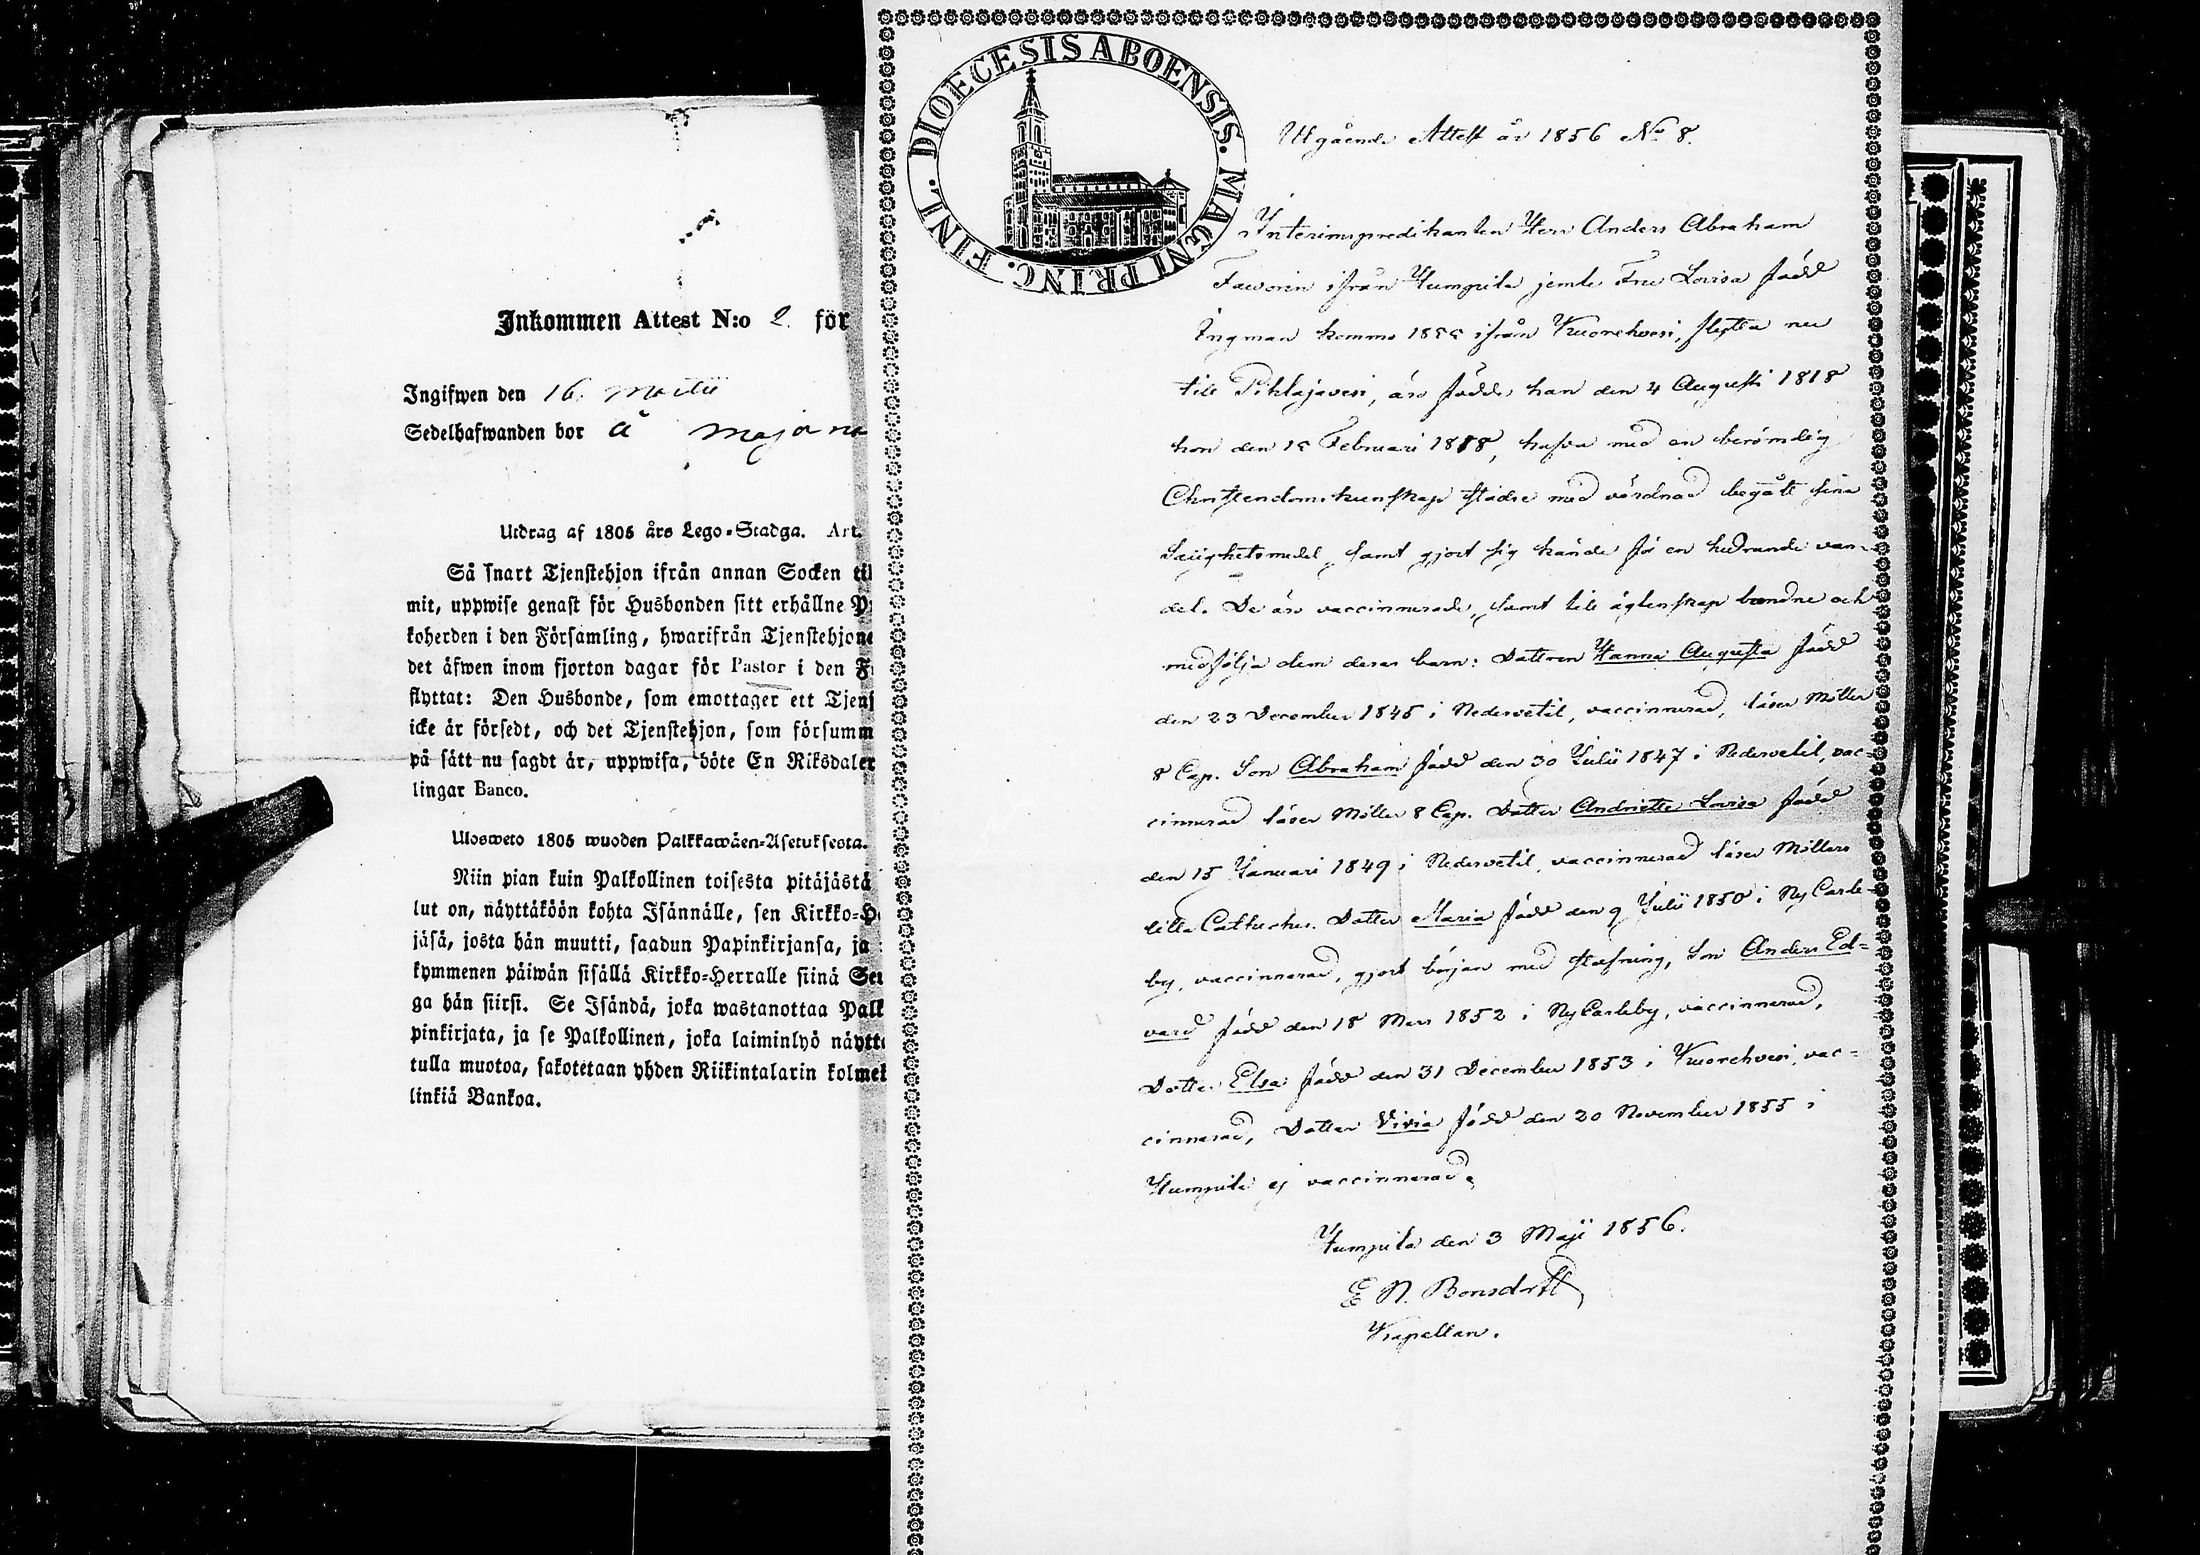 Inkommen Attest N:o 2. för
Ingifwen den 16. Martii
Sedelhafwanden bor å
Utdrag af 1805 års Lego-Stadga. Art.
Så snart Tjenstehjon ifrån annan Socken til
mit, uppwise genast för Husbonden sitt erhållne P
koherden i den Församling, hwarifrån Tjenstehjone
det äfwen inom fjorton dagar för Pastor i den F
flyttat: Den Husbonde, som emottager ett Tjens
icke är försedt, och det Tjenstehjon, som försumm
på sätt nu sagdt är, uppwisa, böte En Riksdaler
lingar Banco.
Ulosweto 1805 wuoden Palkkawäen-Asetuksesta.
Niin pian kuin Palkollinen toisesta pitäjästä
lut on, näyttäköön kohta Isännälle, sen Kirkko-H
jäsä, josta hän muutti, saadun Papinkirjansa, ja
kymmenen päiwän sisällä Kirkko-Herralle siinä Seu
ga hän siirsi. Se Isändä, joka wastanottaa Palk
pinkirjata, ja se Palkollinen, joka laiminlyö näytt
tulla muotoa, sakotetaan yhden Riikintalarin kolmek
linkiä Bankoa.
DIOECESIS ABOENSIS. MAGNI PRINC. FINL.
Utgående Attest år 1856 No 8.
Interimspredikanten Herr Anders Abraham
Favorin ifrån Humpila jemte Fru Lovisa född
Ingman komne 1855 ifrån Kuorehvesi, flytta nu
till Pihlajavesi, äro födde han den 4 Augusti 1818
hon den 15 Februari 1818, hafva med en berömlig
Christendomskunskap städse med vördnad begått sina
Salighetsmedel, samt gjort sig kände för en hedrande van-
del. De äro vaccinnerade, samt till ägtenskap bundne och
medfölja dem deras barn: Dottren Hanna Augusta född
den 23 December 1845 i Nedervetil, vaccinnerad, läser Möller
8 Cap. Son Abraham född den 30 Julii 1847 i Nedervetil, vac-
cinnerad läser Möller 8 Cap. Dotter Andriette Lovisa född
den 15 Januari 1849 i Nedervetil, vaccinnerad läser Möllers
lilla Catheches. Dotter Maria född den 9 Julii 1850 i NyCarle-
by, vaccinnerad, gjort början med stafning, Son Anders Ed=
vard född den 18 Mars 1852 i NyCarleby, vaccinnerad,
Dotter Elsa född den 31 December 1853 i Kuorehvesi, vac=
cinnerad, Dotter Viria född den 20 November 1855 i
Humpila ej vaccinnerad.
Humpila den 3 Maji 1856.
E N. Bonsdorff
Kapellan.